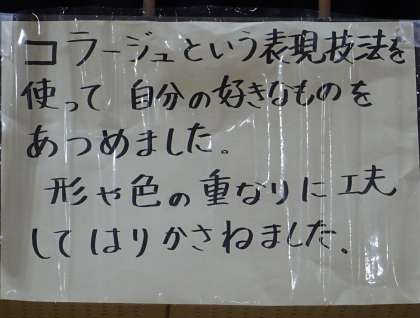 コラージュという表現技法を
使って 自分の好きなものを
あつめました。
形や色の重なりに工夫
してはりかさねました。